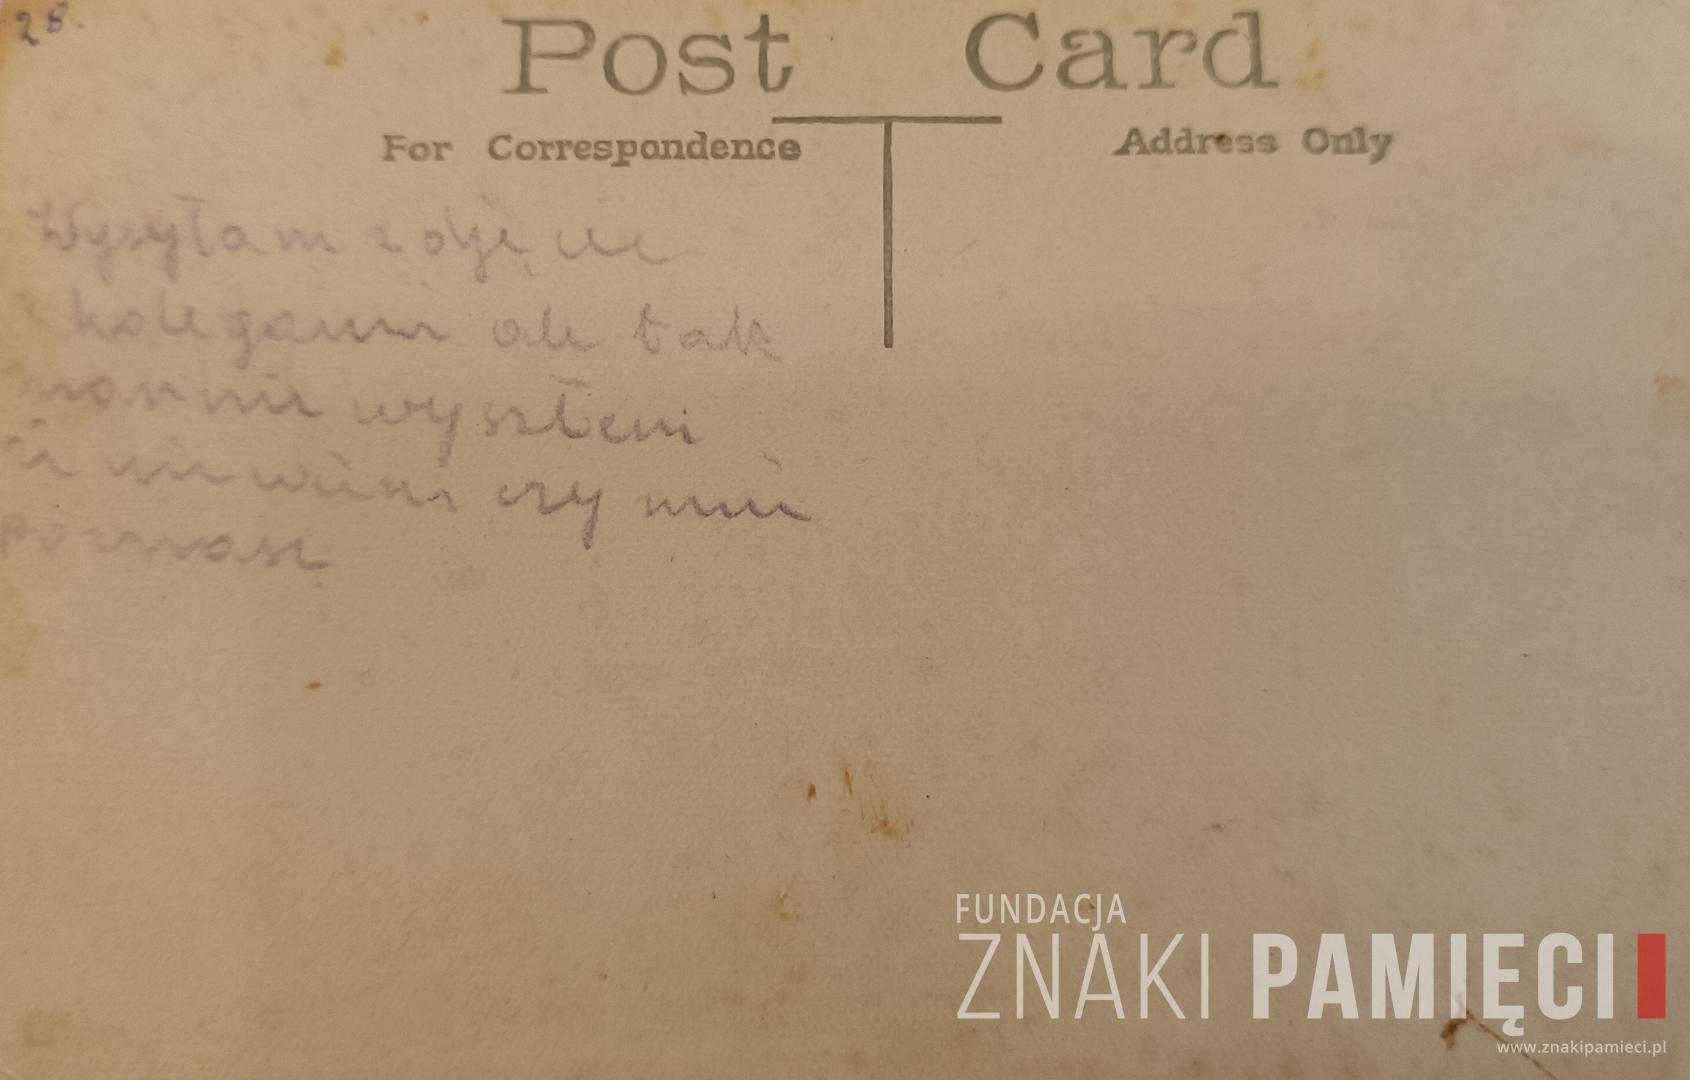 28.
Post Card
For Correspondence
Address Only
Wysyłam zdjęcie
z kolegami ale tak
marnie wyszłem
że nie wiem czy mnie
poznasz
FUNDACJA
ZNAKI PAMIĘCI
www.znakipamieci.pl